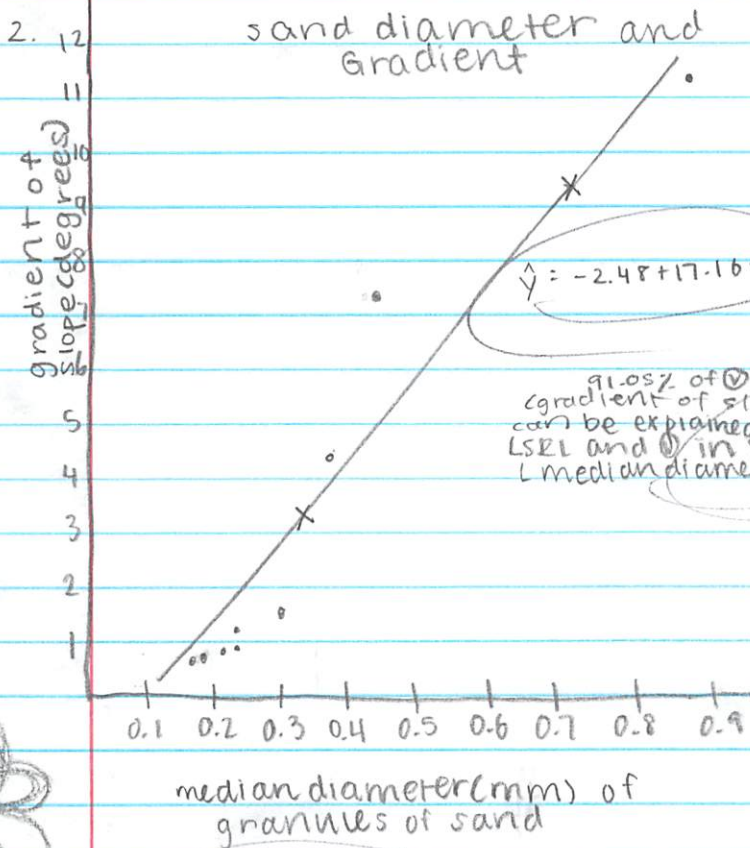 2.
sand diameter and
Gradient
gradient of
slope (degrees)
12
11
10
9
8
7
6
5
4
3
2
1
ŷ = -2.48+17.16
91.05% of Ⓥ
(gradient of sl
can be explained
LSRL and Ⓥ in
(mediandiame
0.1 0.2 0.3 0.4 0.5 0.6 0.7 0.8 0.9
median diameter (mm) of
grannules of sand